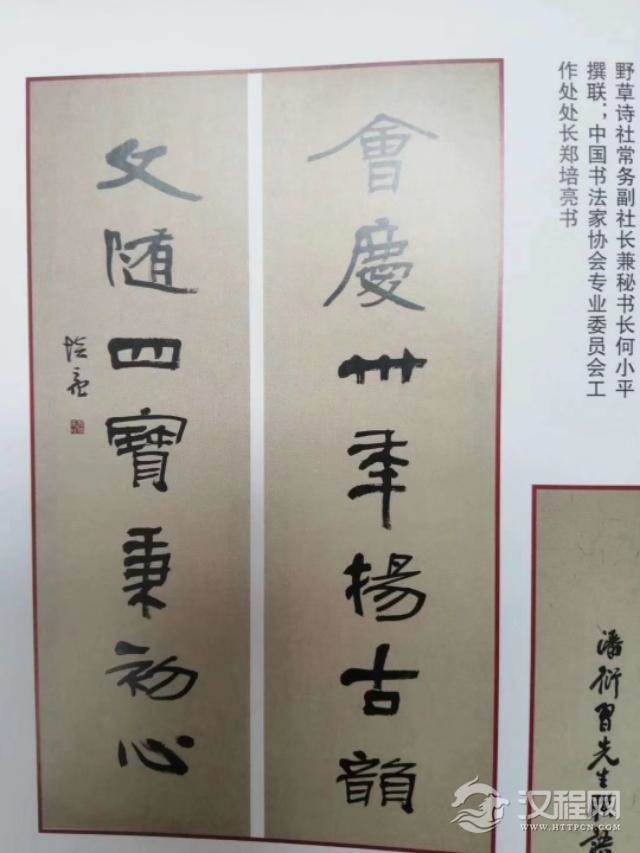 野草诗社常务副社长兼秘书长何小平
撰联；中国书法家协会专业委员会工
作处处长郑培亮书
會慶卅年楊古韻
文随四寶秉初心
培亮
潘衍習先生
汉程网
WWW.HTTPCN.COM